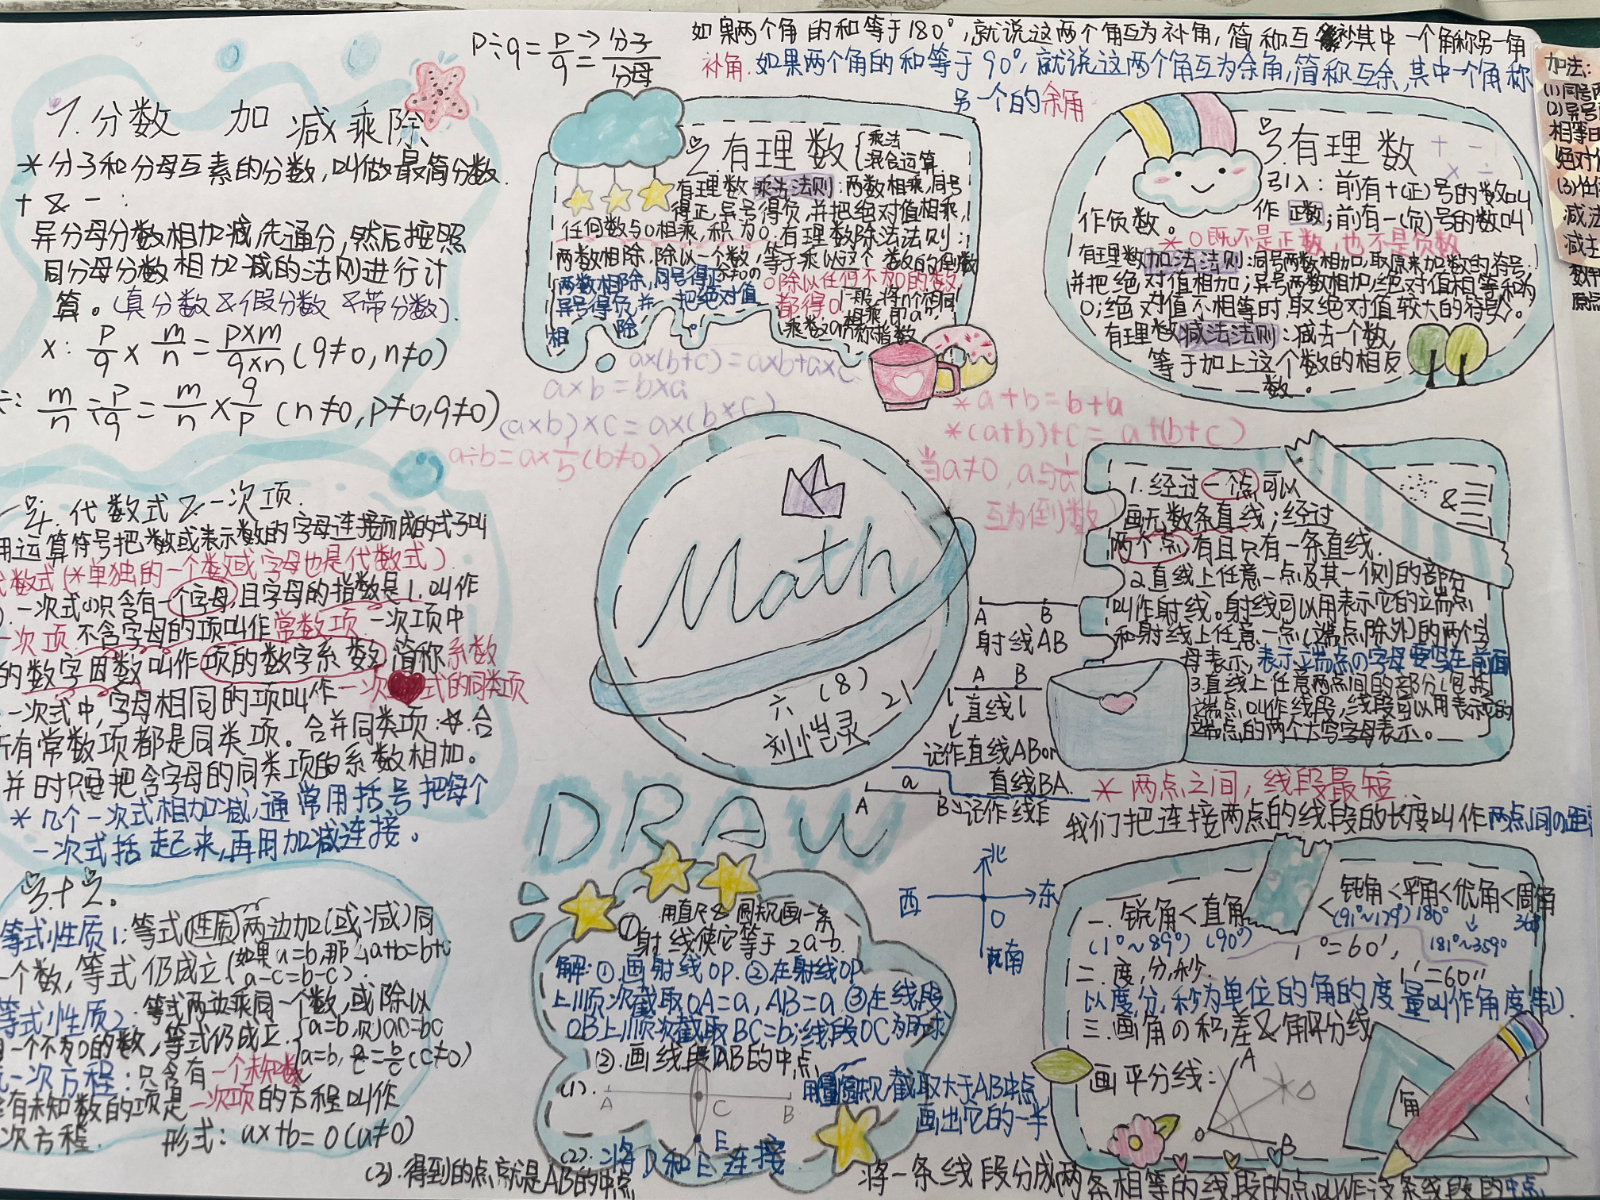 P÷q=P/q→分子/分母
如果两个角的和等于180°,就说这两个角互为补角,简称互补,其中一个角称另一角
补角.如果两个角的和等于90°,就说这两个角互为余角,简称互余,其中一个角称
另一个的余角
1.分数 加减乘除
*分子和分母互素的分数,叫做最简分数.
+ & - :
异分母分数相加减,先通分,然后按照
同分母分数相加减的法则进行计
算。(真分数&假分数&带分数).
×: p/q × m/n = p×m/q×n (q≠0,n≠0)
÷: m/n ÷ p/q = m/n × q/p (n≠0,p≠0,q≠0)
2.有理数{乘法 混合运算
有理数乘法法则:两数相乘,同号
得正,异号得负,并把绝对值相乘,
任何数与0相乘,积为0.有理数除法法则:
两数相除,除以一个数,等于乘以这个数的倒数
两数相除,同号得正
异号得负,并把绝对值
相除。
0除以任何不为0的数,
都得0
3.有理数
+ - × ÷
引入:前有+(正)号的数叫
作正数;前有-(负)号的数叫
作负数。
*0既不是正数,也不是负数
有理数加法法则:同号两数相加,取原来加数的符号,
并把绝对值相加;异号两数相加,绝对值相等和为
0;绝对值不相等时,取绝对值较大的符号。
有理数减法法则:减去一个数,
等于加上这个数的相反
数。
加法:
(1)同号两
(2)异号
相等
绝对
减法
a×(b+c)=a×b+a×c
a×b=b×a
(a×b)×c=a×(b×c)
a÷b=a×1/b(b≠0)
*a+b=b+a
*(a+b)+c=a+(b+c)
当a≠0,a与1/a
互为倒数
Math
六(8)
刘恺录 21
4.代数式&一次项.
用运算符号把数或表示数的字母连接而成的式子叫
代数式(*单独的一个数或字母也是代数式).
一次式:只含有一个字母,且字母的指数是1.叫作
一次项.不含字母的项叫作常数项.一次项中
的数字因数叫作项的数字系数,简称系数
一次式中,字母相同的项叫作一次式的同类项
所有常数项都是同类项。合并同类项:合
并时只要把含字母的同类项的系数相加。
*几个一次式相加减,通常用括号把每个
一次式括起来,再用加减连接。
1.经过一个点可以
画无数条直线;经过
两个点有且只有一条直线.
2.直线上任意一点及其一侧的部分
叫作射线。射线可以用表示它的端点
和射线上任意一点(端点除外)的两个字
母表示,表示端点的字母要写在前面
3.直线上任意两点间的部分(包括
端点)叫作线段,线段可以用表示它的
端点的两个大写字母表示。
&三
A B
射线AB
A B
直线l
记作直线ABor
直线BA.
A a B
记作线段
*两点之间,线段最短.
我们把连接两点的线段的长度叫作两点间の距离
DRAW
等式性质1:等式(性质)两边加(或减)同
一个数,等式仍成立(如果a=b,那么a+c=b+c
a-c=b-c).
等式性质2:等式两边乘同一个数,或除以
同一个不为0的数,等式仍成立.{a=b,则ac=bc
a=b,a/c=b/c(c≠0)
元一次方程:只含有一个未知数
含有未知数的项是一次项的方程叫作
次方程. 形式:ax+b=0(a≠0)
①用直尺&圆规画一条
射线使它等于2a-b.
解:①画射线OP.②在射线OP
上顺次截取OA=a,AB=a③在线段
OB上顺次截取BC=b;线段OC为所求
②.画线段AB的中点
(1). A C B
用圆规,截取大于AB中点
画出它的一半
E
(2).将D和E连接.
(3).得到的点就是AB的中点
北
西 东
O
南
一.锐角<直角<钝角<平角<优角<周角
(1°~89°) (90°) (91°~179°) 180° 181°~359° 360°
1°=60′, 1′=60″
二.度,分,秒.
以度,分,秒为单位的角的度量叫作角度制).
三.画角の和,差&角平分线
画平分线:
A
D
O B
角
将一条线段分成两条相等的线段的点叫作这条线段的中点